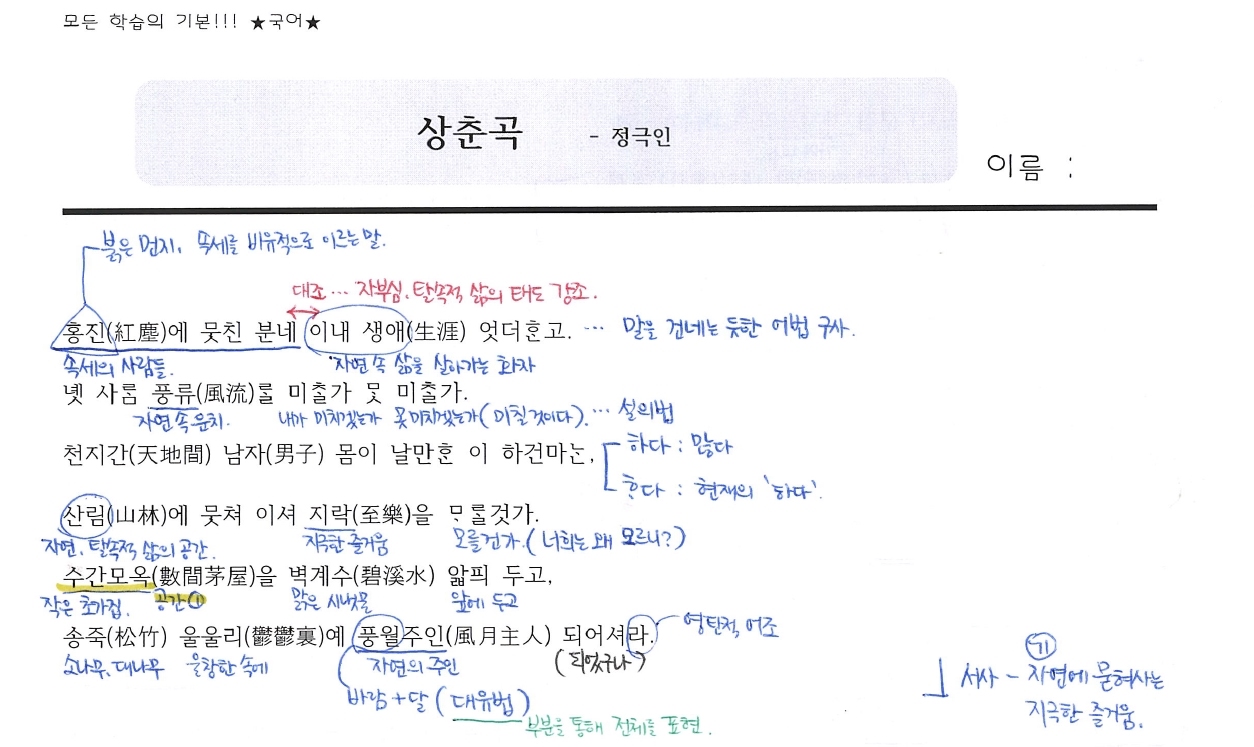 모든 학습의 기본!!! ★국어★
상춘곡 - 정극인
이름 :
붉은 먼지, 속세를 비유적으로 이르는 말.
대조 … 자부심, 탈속적 삶의 태도 강조.
홍진(紅塵)에 뭇친 분네 이내 생애(生涯) 엇더ᄒᆞᆫ고. … 말을 건네는 듯한 어법 구사.
속세의 사람들. 자연 속 삶을 살아가는 화자
녯 사ᄅᆞᆷ 풍류(風流)ᄅᆞᆯ 미ᄎᆞᆯ가 ᄆᆞᆺ 미ᄎᆞᆯ가.
자연 속 운치. 내가 미치겠는가 못 미치겠는가(미칠 것이다). … 설의법
천지간(天地間) 남자(男子) 몸이 날만ᄒᆞᆫ 이 하건마ᄂᆞᆫ,
하다 : 많다
ᄒᆞ다 : 현재의 '하다'.
산림(山林)에 뭇쳐 이셔 지락(至樂)을 ᄆᆞᄅᆞᆯ것가.
자연, 탈속적 삶의 공간. 지극한 즐거움 모를건가.(너희는 왜 모르니?)
수간모옥(數間茅屋)을 벽계수(碧溪水) 앏픠 두고,
작은 초가집. 공간① 맑은 시냇물 앞에 두고
송죽(松竹) 울울리(鬱鬱裏)예 풍월주인(風月主人) 되어셔라. 영탄적 어조
소나무, 대나무 울창한 속에 자연의 주인 (되었구나)
바람+달 (대유법)
부분을 통해 전체를 표현.
기
서사 - 자연에 묻혀사는
지극한 즐거움.